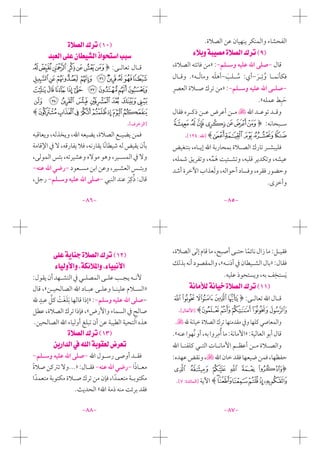 الفحشاء والمنكر ينهيان عن الصلاة.
(٩) ترك الصلاة مصيبة وبلاء
قال -صلى الله عليه وسلم-: «من فاتته الصلاة
فكأنما وُتِرَ -أي: سُلب- أهله وماله». وقال
-صلى الله عليه وسلم-: «من ترك صلاة العصر
حبط عمله».
وقد توعد الله من أعرض عن ذكره فقال
سبحانه: ﴿وَمَنْ أَعْرَضَ عَن ذِكْرِى فَإِنَّ لَهُۥ مَعِيشَةً
ضَنكًا وَنَحْشُرُهُۥ يَوْمَ ٱلْقِيَٰمَةِ أَعْمَىٰ﴾ [طه: ١٢٤].
فليبشر تارك الصلاة بمحاربة الله إياه، بتنغيص
عيشه، وتكدير قلبه، وتشتيت همّه، وتفريق شمله،
وحضور فقره، وفساد أحواله، ولَعذاب الآخرة أشد
وأخزى.
-٨٥-
(١٠) ترك الصلاة
سبب استحواذ الشيطان على العبد
قال تعالى: ﴿وَمَن يَعْشُ عَن ذِكْرِ ٱلرَّحْمَٰنِ نُقَيِّضْ لَهُۥ
شَيْطَٰنًا فَهُوَ لَهُۥ قَرِينٌ (٣٦) وَإِنَّهُمْ لَيَصُدُّونَهُمْ عَنِ ٱلسَّبِيلِ
وَيَحْسَبُونَ أَنَّهُم مُّهْتَدُونَ (٣٧) حَتَّىٰٓ إِذَا جَآءَنَا قَالَ يَٰلَيْتَ بَيْنِى
وَبَيْنَكَ بُعْدَ ٱلْمَشْرِقَيْنِ فَبِئْسَ ٱلْقَرِينُ (٣٨) وَلَن يَنفَعَكُمُ
ٱلْيَوْمَ إِذ ظَّلَمْتُمْ أَنَّكُمْ فِى ٱلْعَذَابِ مُشْتَرِكُونَ﴾
[الزخرف].
فمن يضيع الصلاة، يضيعه الله، ويخذله، ويعاقبه
بأن يقيض له شيطانًا يقارنه، فلا يفارقه، لا في الإقامة
ولا في المسير، وهو مولاه وعشيره، بئس المولى،
وبئس العشير، وعن ابن مسعود -رضي الله عنه-
قال: ذُكِرَ عند النبي -صلى الله عليه وسلم- رجل،
-٨٦-
فقيل: ما زال نائمًا حتى أصبح، ما قام إلى الصلاة،
فقال: «بال الشيطان في أذنه»، والمقصود أنه بذلك
يَستخف به، ويستحوذ عليه.
(١١) ترك الصلاة خيانة للأمانة
قال الله تعالى: ﴿يَٰٓأَيُّهَا ٱلَّذِينَ ءَامَنُوا۟ لَا تَخُونُوا۟ ٱللَّهَ
وَٱلرَّسُولَ وَتَخُونُوٓا۟ أَمَٰنَٰتِكُمْ وَأَنتُمْ تَعْلَمُونَ﴾ [الأنفال].
والمعاصي كلها وفي مقدمتها ترك الصلاة خيانة لله.
قال أبو العالية: «الأمانة: ما أُمِروا به، أو نُهوا عنه».
والصلاة من أعظم الأمانات التي كلفنا الله
حفظها، فمن ضيعها فقد خان الله، ونقض عهده:
﴿وَٱذْكُرُوا۟ نِعْمَةَ ٱللَّهِ عَلَيْكُمْ وَمِيثَٰقَهُ ٱلَّذِى
وَاثَقَكُم بِهِۦٓ إِذْ قُلْتُمْ سَمِعْنَا وَأَطَعْنَا﴾ الآية [المائدة: ٧].
-٨٧-
(١٢) ترك الصلاة جناية على
الأنبياء، والملائكة، والأولياء
لأنه يجب على المصلي في التشهد أن يقول:
«السلام علينا وعلى عباد الله الصالحين»، قال
-صلى الله عليه وسلم-: «إذا قالها بَلَغَتْ كُلَّ عبدٍ للهِ
صالحٍ في السماء والأرض»، فإذا ترك الصلاة، عطل
هذه التحية الطيبة عن أن تبلغ أولياء الله الصالحين.
(١٣) ترك الصلاة
تعرض لعقوبة الله في الدارين
فقد أوصى رسول الله -صلى الله عليه وسلم-
معاذًا -رضي الله عنه- فقال: «...ولا تتركن صلاةً
مكتوبة متعمدًا، فإن من ترك صلاة مكتوبة متعمدًا
فقد برئت منه ذمة الله» الحديث.
-٨٨-